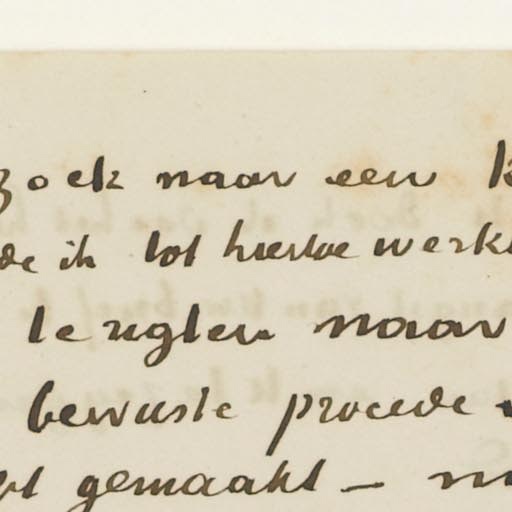 zoek naar een k
de ik tot hiertoe werk
te rigten naar
bewuste procede
pt gemaakt — m